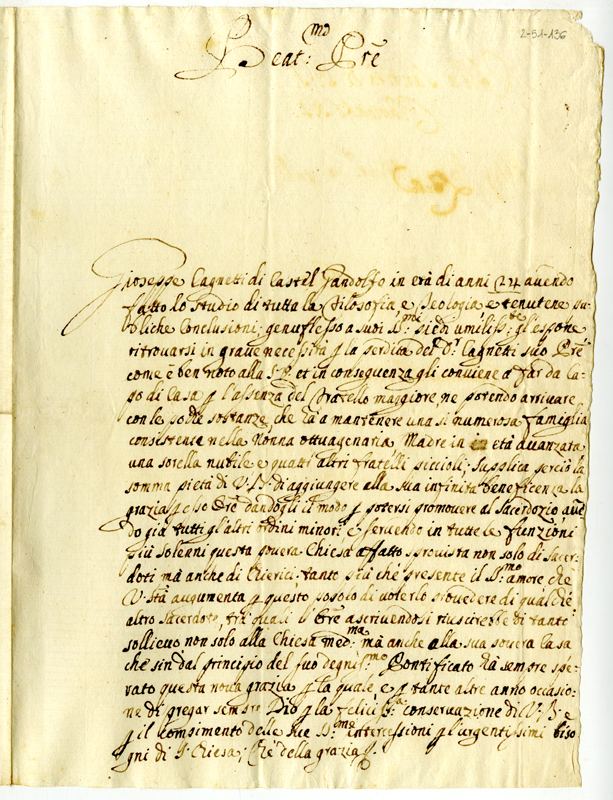 2-51-136
Beat:mo Prē
Gioseppe Cagnetti di Castel Gandolfo in età di anni 24 auendo
fatto lo studio di tutta la filosofia, e Teologia, e tenutene pu-
bliche Conclusioni; genuflesso a suoi S.mi piedi umiliss:te gl'espone
ritrouarsi in graue necessità p la perdita del D.r Cagnetti suo Prē
come è ben noto alla S.V. et in conseguenza gli conuiene a far da Ca-
po di Casa p l'assenza del fratello maggiore, ne potendo arriuare
con le poche sostanze, che hà a mantenere una si numerosa famiglia
consistente nella Nonna ottuagenaria Madre in età auanzata
una sorella nubile e quattr'altri fratelli piccioli; Supplica perciò la
somma pietà di V. B. di aggiungere alla sua infinita beneficenza la
grazia p esso Orē dandogli il modo p potersi promouere al Sacerdozio auen
do già tutti gl'altri ordini minori e seruendo in tutte le funzioni
più solenni questa pouera Chiesa affatto sprouista non solo di Sacer-
doti mà anche di Chierici; tanto più che presente il S.mo amore che
V. Stà augumenta p questo popolo di uolerlo prouedere di qualche
altro Sacerdote, trà quali l'Orē ascriuendosi riuscirebbe di tanto
sollieuo non solo alla Chiesa med:ma mà anche alla sua pouera Casa
che sin dal principio del suo degniss:mo Pontificato hà sempre spe-
rato questa noua grazia p la quale, e p tante altre anno occasio-
ne di pregar sempre Dio p la feliciss:a conseruazione di V. B. e
p il compimento delle sue S.me intercessioni p l'urgentissimi biso
gni di S. Chiesa; Che della grazia